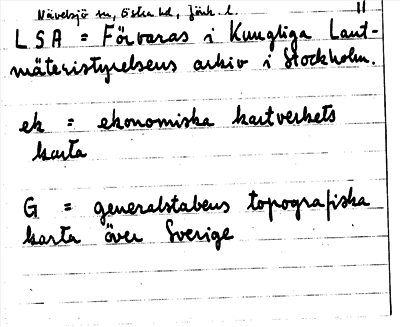 Nävelsjö sn, Östra hd, Jönk. l. 11
LSA = Förvaras i Kungliga Lant-
mäteristyrelsens arkiv i Stockholm.
ek = ekonomiska kartverkets
karta
G = generalstabens topografiska
karta över Sverige